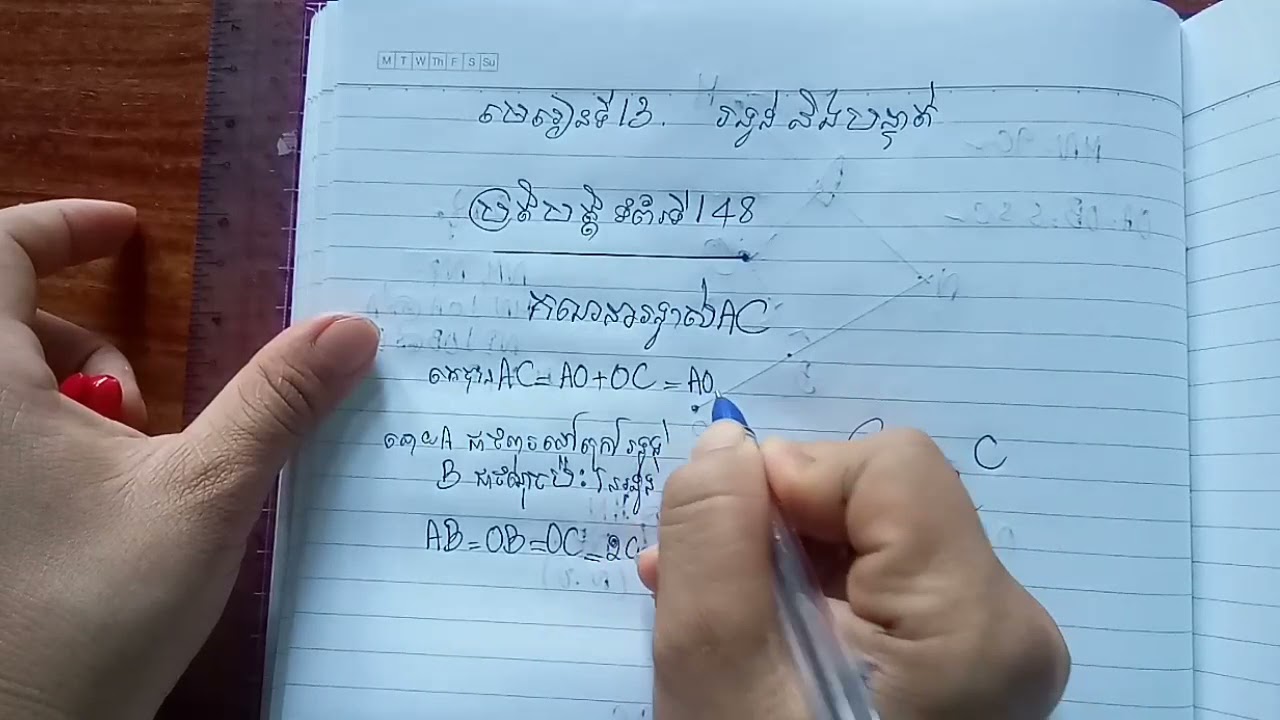 M T W Th F S Su
មេរៀនទី13. រង្វង់ និងបន្ទាត់
ប្រតិបត្តិ ទំព័រទី148
គណនារង្វាស់AC
គេបានAC=AO+OC=AO
ដោយA ជាចំណុចនៅក្រៅ រង្វង់
B ជាចំណុចប៉ះ នៃរង្វង់
AB=OB=OC=2c
C